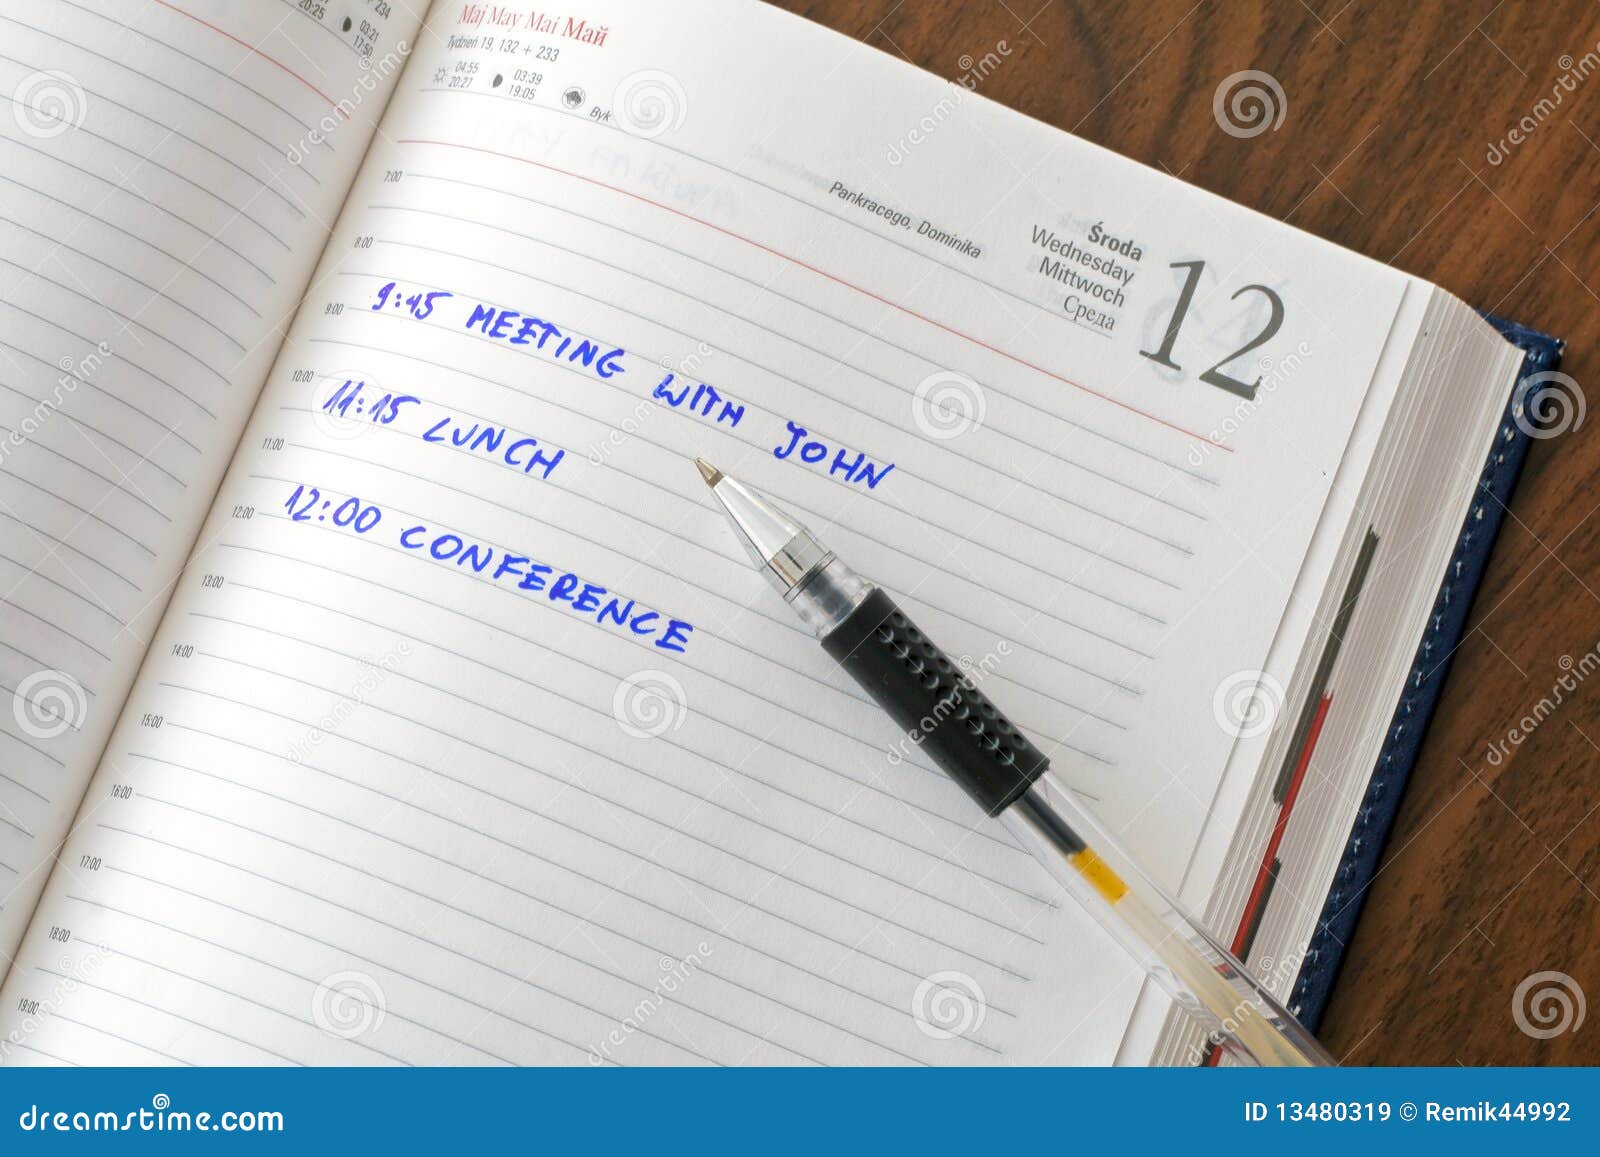 234
20:25 03:21
17:50
Maj May Mai Май
Tydzień 19, 132 + 233
04:55 03:39
20:27 19:05 Byk
Pankracego, Dominika
Środa
Wednesday
Mittwoch
Среда
12
7:00
8:00
9:00
9:45 MEETING WITH JOHN
10:00
11:15 LUNCH
11:00
12:00
12:00 CONFERENCE
13:00
14:00
15:00
16:00
17:00
18:00
19:00
dreamstime.com
ID 13480319 © Remik44992